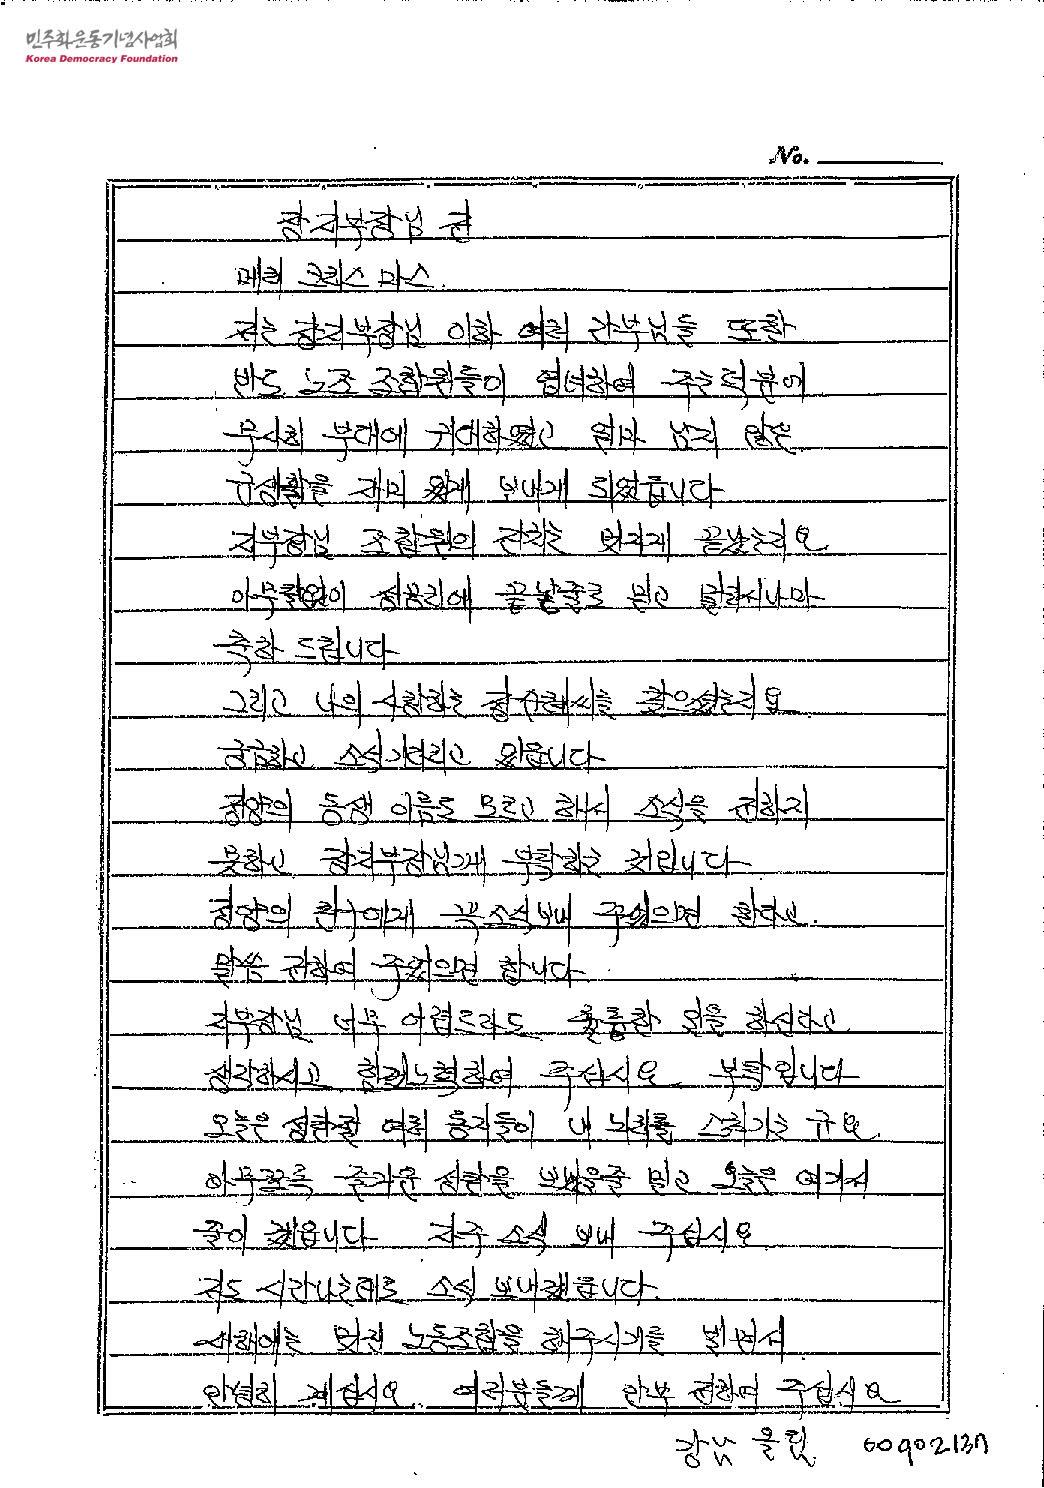 민주화운동기념사업회
Korea Democracy Foundation
No.
장지부장님 전
메리 크리스마스.
저는 장지부장님 이하 여러 간부님들 또한
반도 노조 조합원들이 염녀하여 주는 덕분에
무사히 부대에 귀대하였고 얼마 남지 않은
군생활을 재미 있게 보내게 되었습니다
지부장님 조합원의 잔치는 멋지게 끝났는지요
아무탈없이 성공리에 끝났줄로 믿고 멀리서나마
축하 드립니다
그리고 나의 사랑하는 를 찾으셨는지요
궁금하고 소식기다리고 있읍니다
정양의 동생 이름도 모르고 해서 소식을 전하지
못하고 장지부장님께 부탁하는 것입니다
정양의 친구에게 꼭 소식보내 주었으면 한다고.
말씀 전하여 주었으면 합니다
지부장님 너무 어렵드라도 훌륭한 일을 하신다고
생각하시고 힘껏노력하여 주십시요 부탁입니다
오늘은 성탄절 여러 동지들이 내 뇌리를 스쳐가는 군요.
아무쪼록 즐거운 성탄을 보냈을줄 믿고 오늘은 여기서
줄이 겠읍니다 자주 소식 보내 주십시요
저도 시간나는데로 소식 보내겠습니다.
새해에는 멋진 노동조합을 해주시기를 빌면서
안녕히 계십시요 여러분들게 안부 전하여 주십시요
강남 올림 60902137